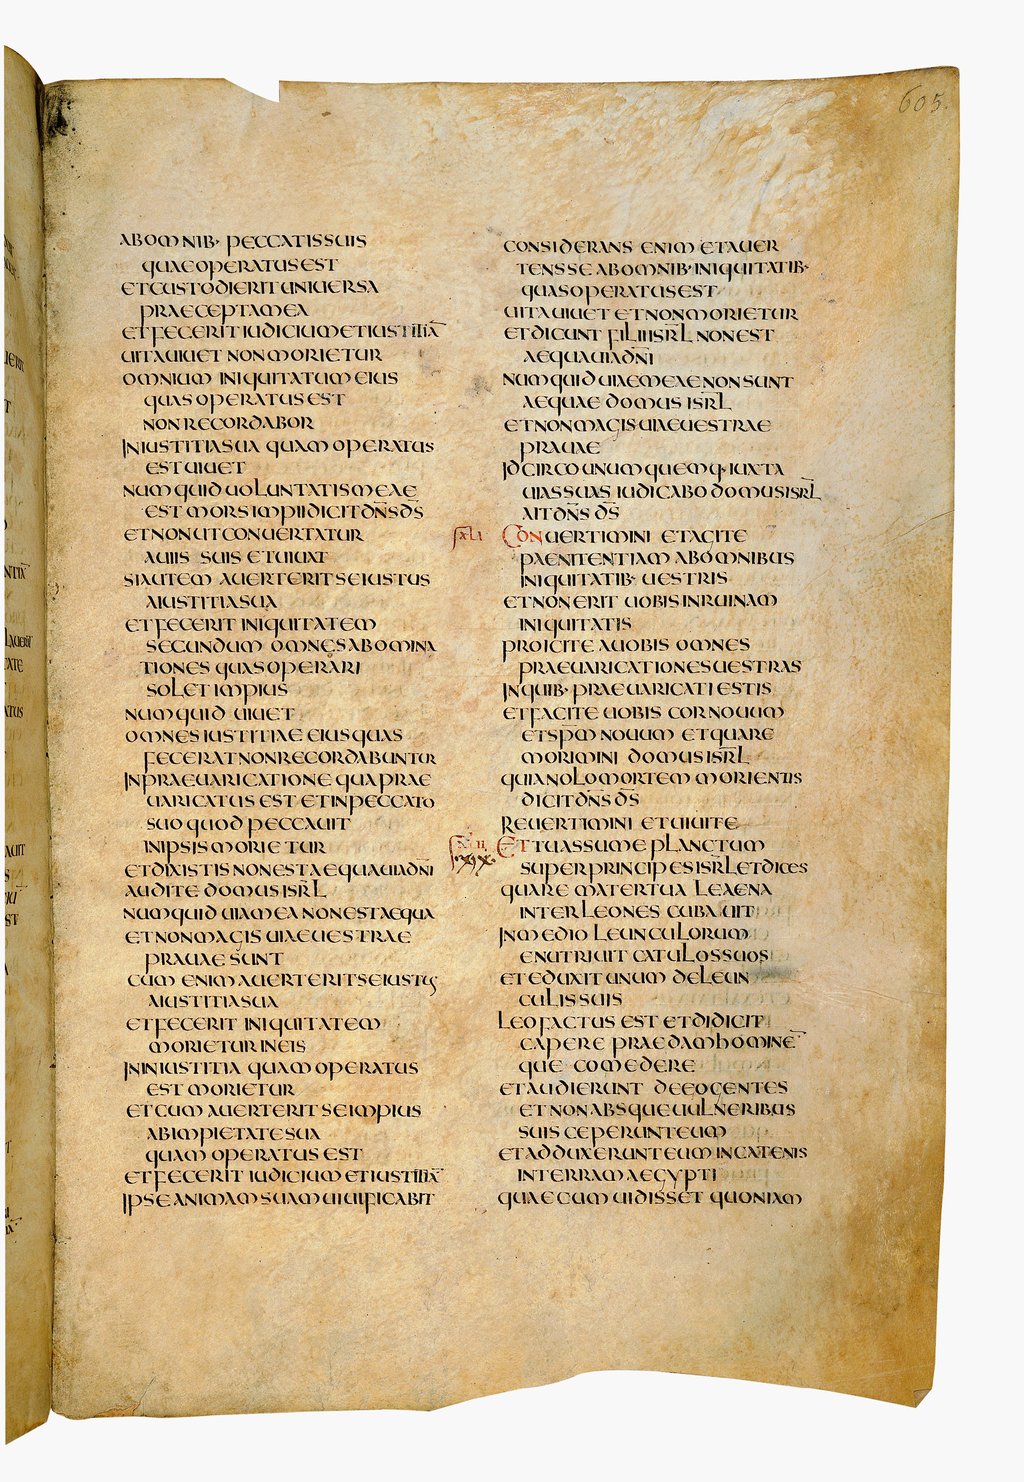 605.
ABOMNIB· PECCATIS SUIS
QUAE OPERATUS EST
ET CUSTODIERIT UNIVERSA
PRAECEPTA MEA
ET FECERIT IUDICIUM ET IUSTITIĀ
UITA UIUET NON MORIETUR
OMNIUM INIQUITATUM EIUS
QUAS OPERATUS EST
NON RECORDABOR
IN IUSTITIA SUA QUAM OPERATUS
EST UIUET
NUMQUID UOLUNTATIS MEAE
EST MORS IMPII DICIT DN̄S D̄S
ET NON UT CONUERTATUR
A UIIS SUIS ET UIUAT
SI AUTEM AUERTERIT SE IUSTUS
A IUSTITIA SUA
ET FECERIT INIQUITATEM
SECUNDUM OMNES ABOMINA
TIONES QUAS OPERARI
SOLET IMPIUS
NUMQUID UIUET
OMNES IUSTITIAE EIUS QUAS
FECERAT NON RECORDABUNTUR
IN PRAEUARICATIONE QUA PRAE
UARICATUS EST ET IN PECCATO
SUO QUOD PECCAUIT
IN IPSIS MORIETUR
ET DIXISTIS NON EST AEQUA UIA DN̄I
AUDITE DOMUS ISR̄L
NUMQUID UIA MEA NON EST AEQUA
ET NON MAGIS UIAE UESTRAE
PRAUAE SUNT
CUM ENIM AUERTERIT SE IUSTUS
A IUSTITIA SUA
ET FECERIT INIQUITATEM
MORIETUR IN EIS
IN INIUSTITIA QUAM OPERATUS
EST MORIETUR
ET CUM AUERTERIT SE IMPIUS
AB IMPIETATE SUA
QUAM OPERATUS EST
ET FECERIT IUDICIUM ET IUSTITIĀ
IPSE ANIMAM SUAM UIUIFICABIT
CONSIDERANS ENIM ET AUER
TENS SE AB OMNIB· INIQUITATIB·
QUAS OPERATUS EST
UITA UIUET ET NON MORIETUR
ET DICUNT FILII ISR̄L NON EST
AEQUA UIA DN̄I
NUMQUID UIAE MEAE NON SUNT
AEQUAE DOMUS ISR̄L
ET NON MAGIS UIAE UESTRAE
PRAUAE
IDCIRCO UNUMQUEMQ· IUXTA
UIAS SUAS IUDICABO DOMUS ISR̄L
AIT DN̄S D̄S
XLI CONUERTIMINI ET AGITE
PAENITENTIAM AB OMNIBUS
INIQUITATIB· UESTRIS
ET NON ERIT UOBIS IN RUINAM
INIQUITATIS
PROICITE A UOBIS OMNES
PRAEUARICATIONES UESTRAS
IN QUIB· PRAEUARICATI ESTIS
ET FACITE UOBIS COR NOUUM
ET SP̄M NOUUM ET QUARE
MORIMINI DOMUS ISR̄L
QUIA NOLO MORTEM MORIENTIS
DICIT DN̄S D̄S
REUERTIMINI ET UIUITE
ET TU ASSUME PLANCTUM
SUPER PRINCIPES ISR̄L ET DICES
QUARE MATER TUA LEAENA
INTER LEONES CUBAUIT
IN MEDIO LEUNCULORUM
ENUTRIUIT CATULOS SUOS
ET EDUXIT UNUM DE LEUN
CULIS SUIS
LEO FACTUS EST ET DIDICIT
CAPERE PRAEDAM HOMINĒ
QUE COMEDERE
ET AUDIERUNT DE EO GENTES
ET NON ABSQUE UULNERIBUS
SUIS CEPERUNT EUM
ET ADDUXERUNT EUM IN CATENIS
IN TERRAM AEGYPTI
QUAE CUM UIDISSET QUONIAM